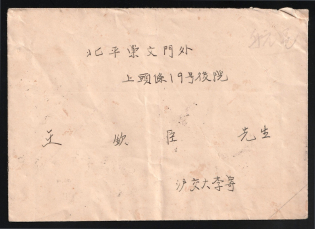 北平崇文門外
上頭條19号後院
王欽臣 先生
沪交大李寄